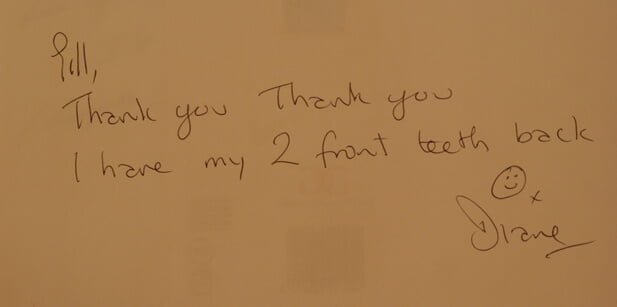 Gill,
Thank you Thank you
I have my 2 front teeth back
x
Diane